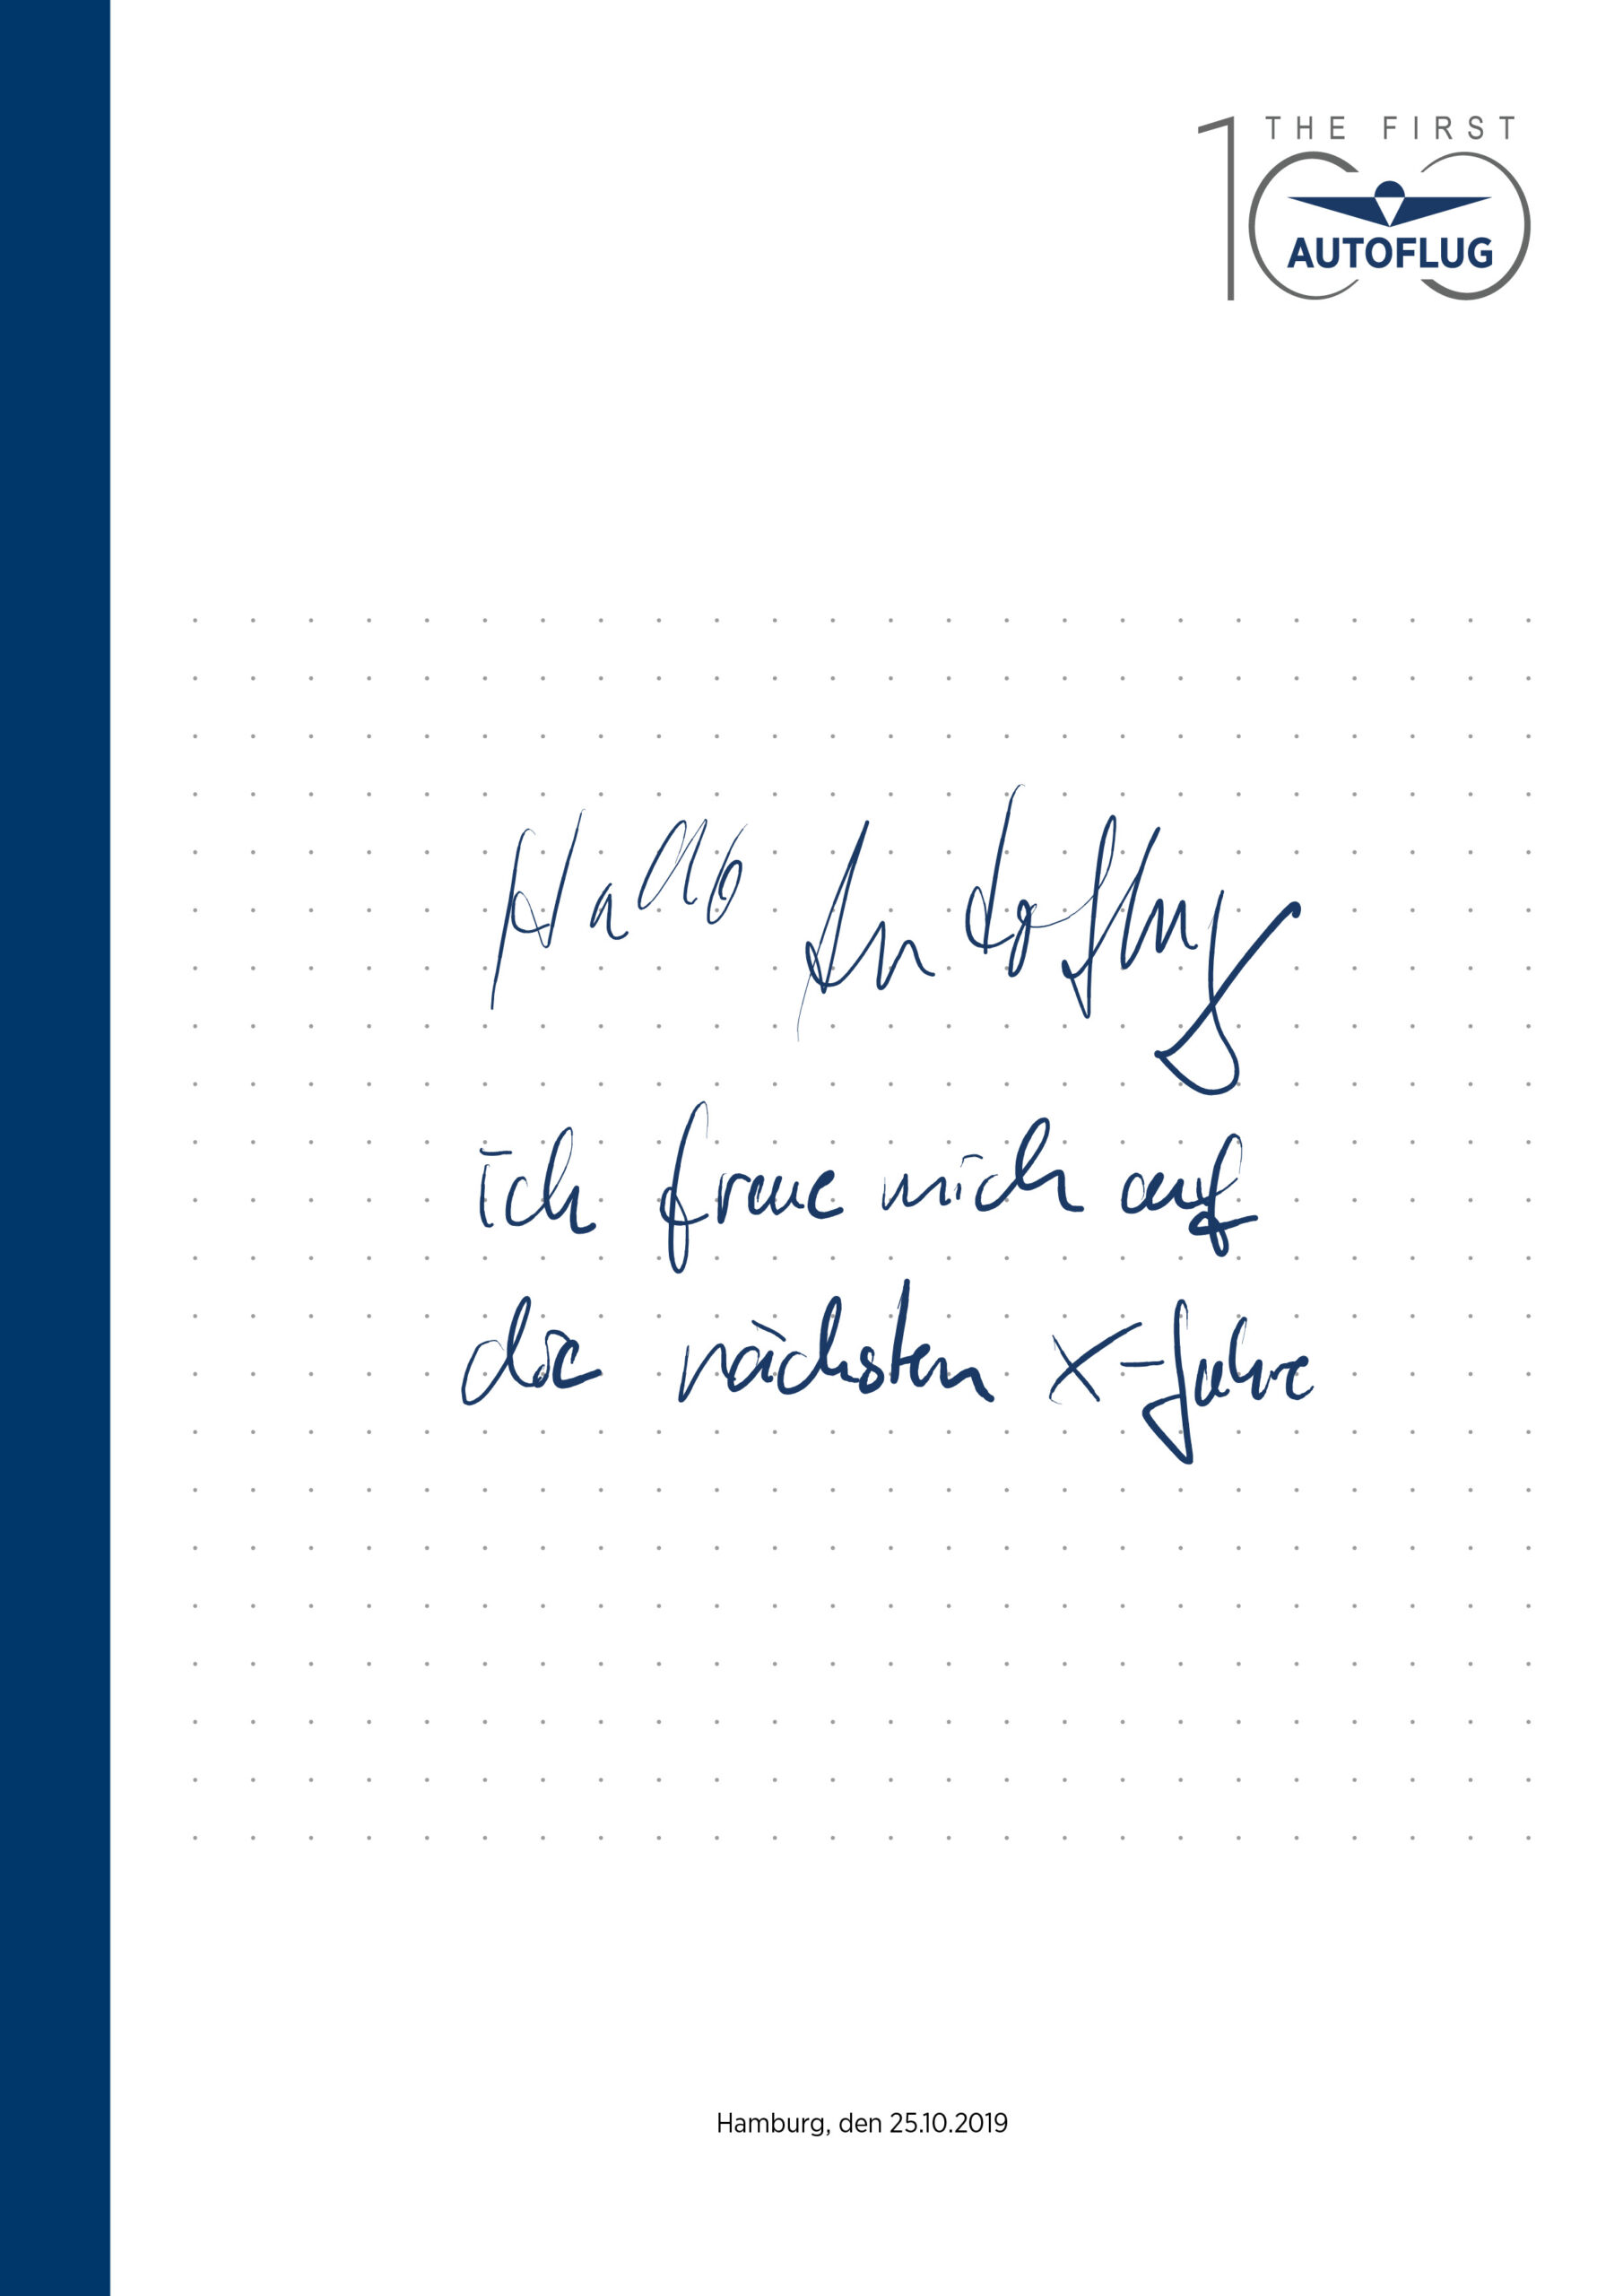 THE FIRST
100
AUTOFLUG
Hallo
Ich freue mich auf
die nächsten X-Jahre
Hamburg, den 25.10.2019